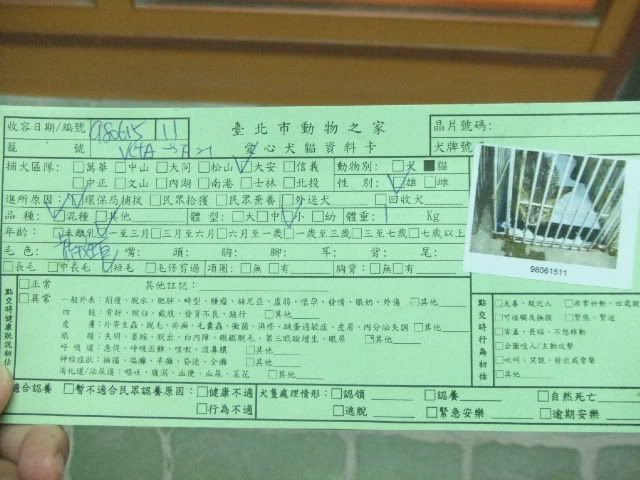 收容日期/編號 980615 11 臺北市動物之家 晶片號碼:
籠 號 愛心犬貓資料卡 犬牌號
捕犬區隊: □萬華 □中山 □大同 □松山 ☑大安 □信義 動物別: □犬 ■貓
□中正 □文山 □內湖 □南港 □士林 □北投 性 別: ☑雄 □雌
進所原因: ☑環保局捕捉 □民眾拾獲 □民眾棄養 □外送犬 □回收犬
品 種: ☑混種 □其他 體 型: □大 □中 ☑小 □幼 體重: Kg
年齡: □未離乳 □一至三月 □三月至六月 □六月至一歲 □一歲至三歲 □三至七歲 □七歲以上
毛 色: 嘴: 頭: 胸: 腳: 耳: 背: 尾:
□長毛 □中長毛 ☑短毛 □毛修剪過 項圈: □無 □有 胸背: □無 □有
98061511
點交時健康狀況初估 □正常 其他註記:
□異常 一般外表: 削瘦、脫水、肥胖、畸型、腫瘤、赫尼亞、虛弱、懷孕、發情、眼奶、外傷 □其他
四 肢: 骨折、脫臼、截肢、發育不良、跛行 □其他
皮 膚: 外寄生蟲、脫毛、疥癬、毛囊蟲、黴菌、濕疹、跳蚤過敏症、皮屑、內分泌失調 □其他
眼 睛: 失明、萎縮、脫出、白內障、眼瞼脫毛、第三眼瞼增生、眼屎 □其他
呼 吸 道: 急促、呼吸困難、咳嗽、流鼻膿 □其他
神經症狀: 抽搐、偏癱、半癱、昏迷、全癱 □其他
消化道/泌尿道: 嘔吐、腹瀉、血便、血尿、菜花 □其他
點交時行為初估 □友善、親近人 □非常好動、四處
□可碰觸及撫摸 □緊張、緊迫
□害羞、畏縮、不想移動
□企圖咬人/主動攻擊
□吠叫、哭號、發出威脅聲
□其他
適合認養 □暫不適合民眾認養原因: □健康不適 犬隻處理情形: □認領 □認養 □自然死亡
□行為不適 □逃脫 □緊急安樂 □逾期安樂